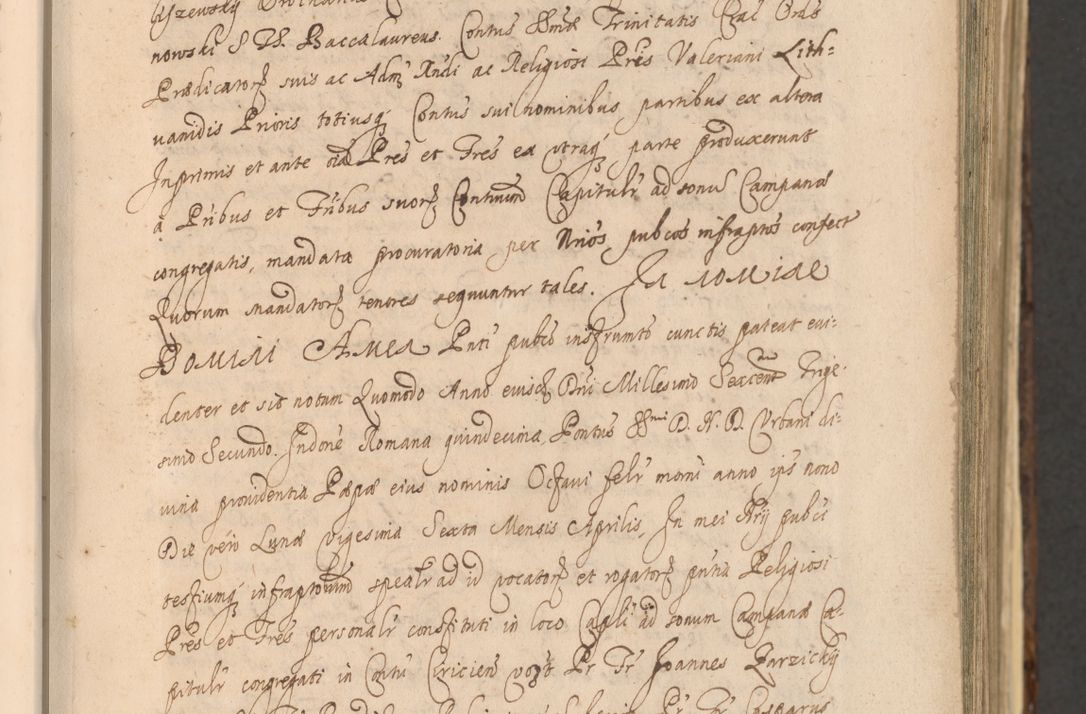 nowski S. Th. Baccalaureus. Contus SSmæ Trinitatis Crac Ords
Prædicatorȝ suis ac Admȝ Rndi ac Religiosi Pris Valeriani Lith=
uanidis Prioris totiusqȝ Contus sui nominibus partibus ex altera
Inprimis et ante oia Pres et Fres ex utraqȝ parte produxerunt
a Pribus et Fribus suorȝ Contuum Capitulr ad sonu Campanæ
congregatis, mandata procuratoria per Nrios pubcos infraptos confect
Quorum mandatorȝ tenores sequuntur tales. In nomine
Domini Amen Pnti pubco instrumto cunctis pateat evi:
denter et sit notum Quomodo Anno eiusdȝ Dni Millesimo Sexcenmo Trige.
simo Secundo. Indone Romana quindecima, Pontus SSmi D. N. D. Urbani di:
uina providentia Papæ eius nominis Octavi felr moni anno ips nono
Die vero Lunæ vigesima Sexta Mensis Aprilis, In mei Nrij pubci
testiumqȝ infraptorum spealr ad id vocatorȝ et rogatorȝ pntia Religiosi
Pres et Fres personalr constituti in loco Capli ad sonum Campanæ Ca-
pitulr congregati in Contu
Pr Fr Joannes Zarzicky